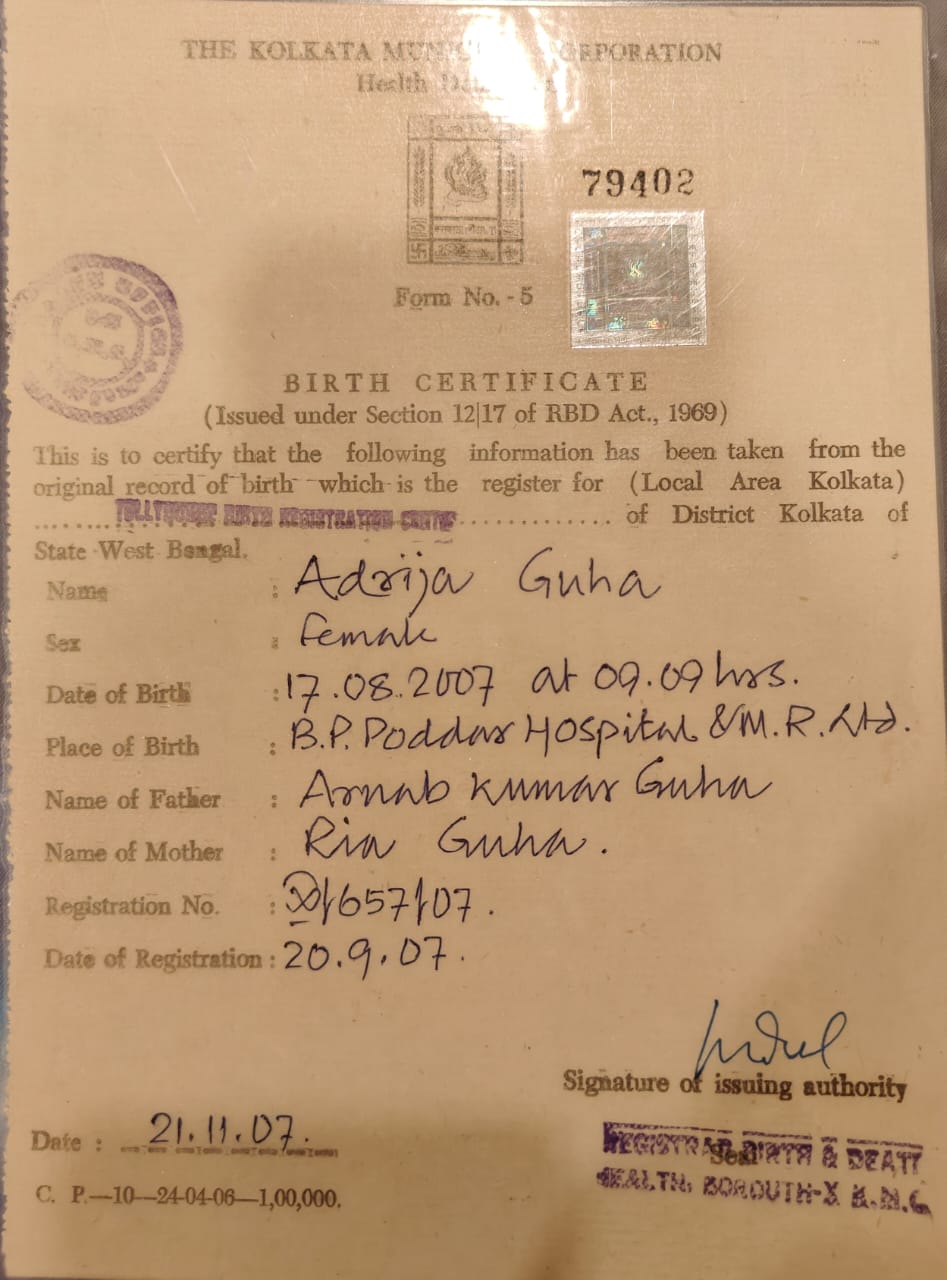 THE KOLKATA MUNICIPAL CORPORATION
Health Department
79402
Form No. - 5
BIRTH CERTIFICATE
(Issued under Section 12|17 of RBD Act., 1969)
This is to certify that the following information has been taken from the
original record of birth which is the register for (Local Area Kolkata)
........ BIRTH REGISTRATION CENTRE ............... of District Kolkata of
State West Bengal.
Name : Adrija Guha
Sex : Female
Date of Birth : 17.08.2007 at 09.09 hrs.
Place of Birth : B.P. Poddar Hospital & M.R. Ltd.
Name of Father : Arnab Kumar Guha
Name of Mother : Ria Guha.
Registration No. : X/657/07.
Date of Registration : 20.9.07.
Signature of issuing authority
Date : 21.11.07.
Seal
REGISTRAR BIRTH & DEATH
HEALTH, BOROUTH-X K.M.C
C. P.—10—24-04-06—1,00,000.